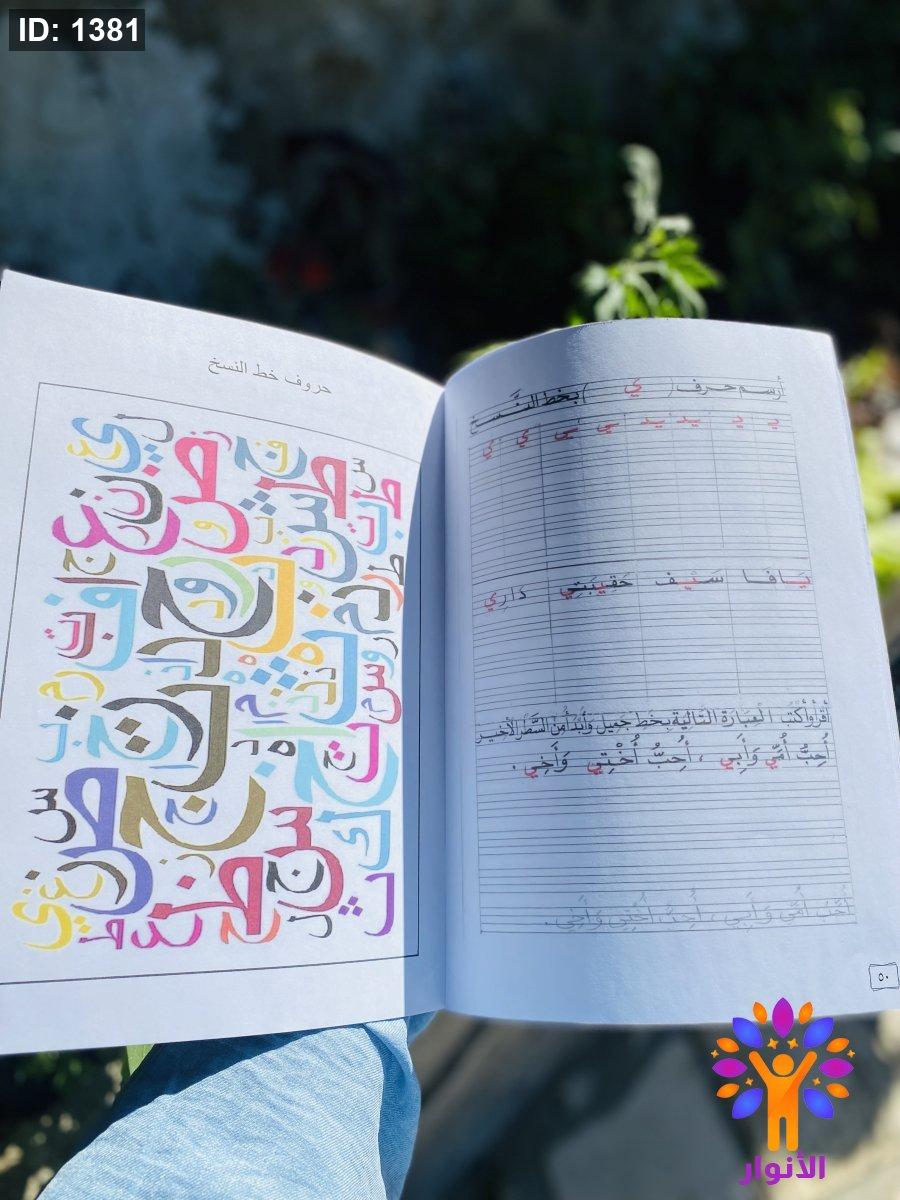 ID: 1381
حروف خط النسخ
أرسم حرف ( ي ) بخط النَّسخ
يـ يـ ـيـد ـيـد ـي ـي ي ي
يـافـا سَـيْـف حَقيبَتِي دَارِي
أقرأ وأكتب العبارة التالية بخط جميل وأبدأ من السطر الأخير
أُحِبُّ أُمّي وَأَبي ، أُحِبُّ أُخْتِي وَأَخِي .
أُحِبُّ أُمّي وَأَبي ، أُحِبُّ أُخْتِي وَأَخِي .
٥٠
الأنوار